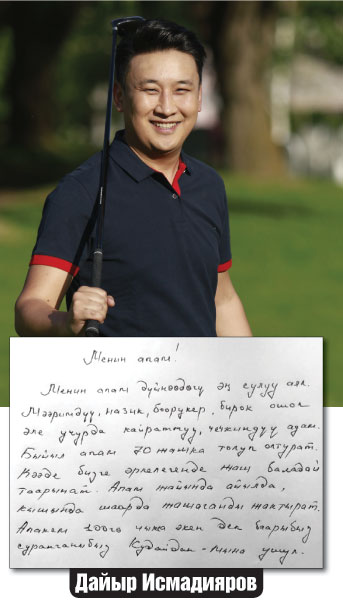 Менин апам!
Менин апам дүйнөдөгү эң сулуу аял.
Мээримдүү, назик, боорукер, бирок ошол
эле учурда кайраттуу, чечкиндүү адам.
Быйыл апам 70 жашка толуп олтурат.
Кээде бизге эркелегенде жаш баладай
таарынат. Апам жайында айылда,
кышында шаарда жашаганды жактырат.
Апакем 100гө чыкса экен деп баарыбыз
суранганыбыз Кудайдан - мына ушул.
Дайыр Исмадияров